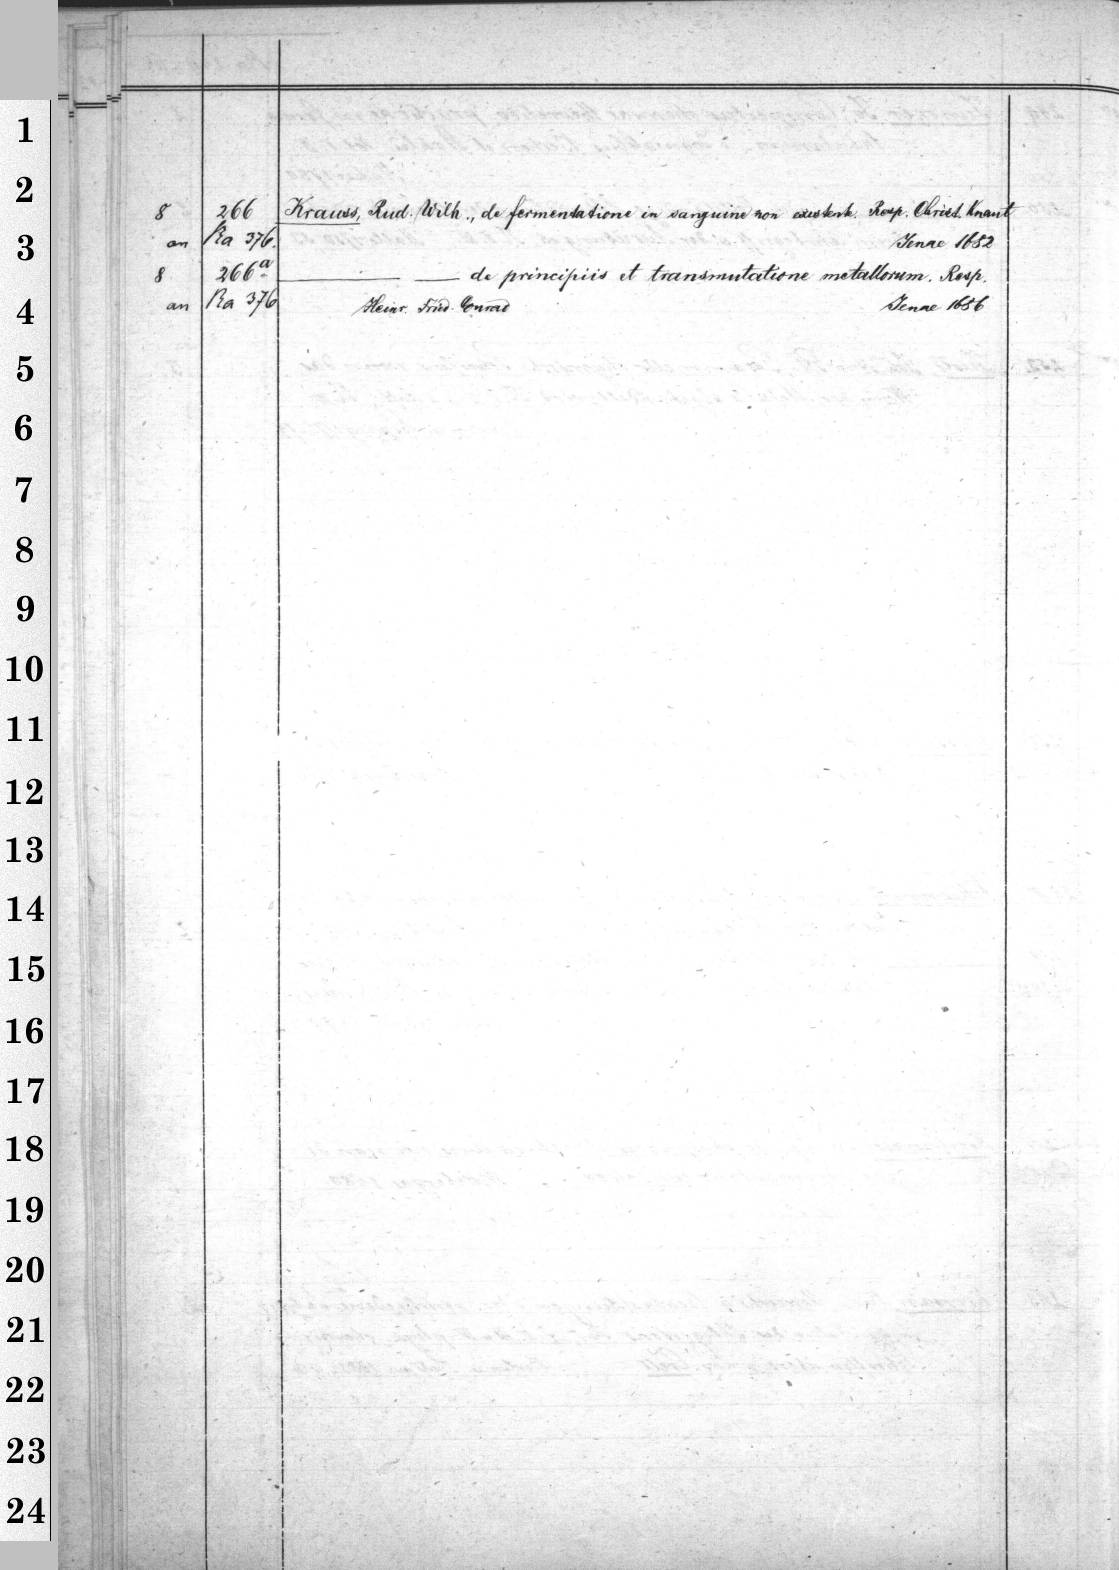 1
2
8 266 Krauss, Rud. Wilh., de fermentatione in sanguine non existente. Resp. Christ. Knaut
3
an Ra 376. Jenae 1682
8 266a ——— — de principiis et transmutatione metallorum. Resp.
4
an Ra 376 Heinr. Fried. Conrad Jenae 1686
5
6
7
8
9
10
11
12
13
14
15
16
17
18
19
20
21
22
23
24